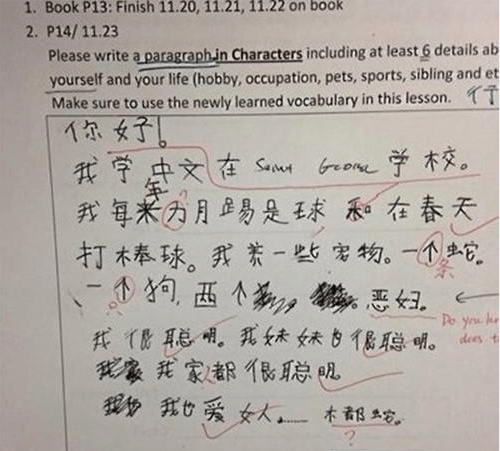 1. Book P13: Finish 11.20, 11.21, 11.22 on book
2. P14/ 11.23
Please write a paragraph in Characters including at least 6 details ab
yourself and your life (hobby, occupation, pets, sports, sibling and et
Make sure to use the newly learned vocabulary in this lesson.
你好!
我学中文在 Saint George 学校。
我每 月踢是球 和 在春天
打棒球。我养一些宠物。一个蛇。
条
一个狗, 两个 恶妇。
Do you
does
我很聪明。我妹妹也很聪明。
我家都很聪明。
我也爱女人…… 木都蛇。
?